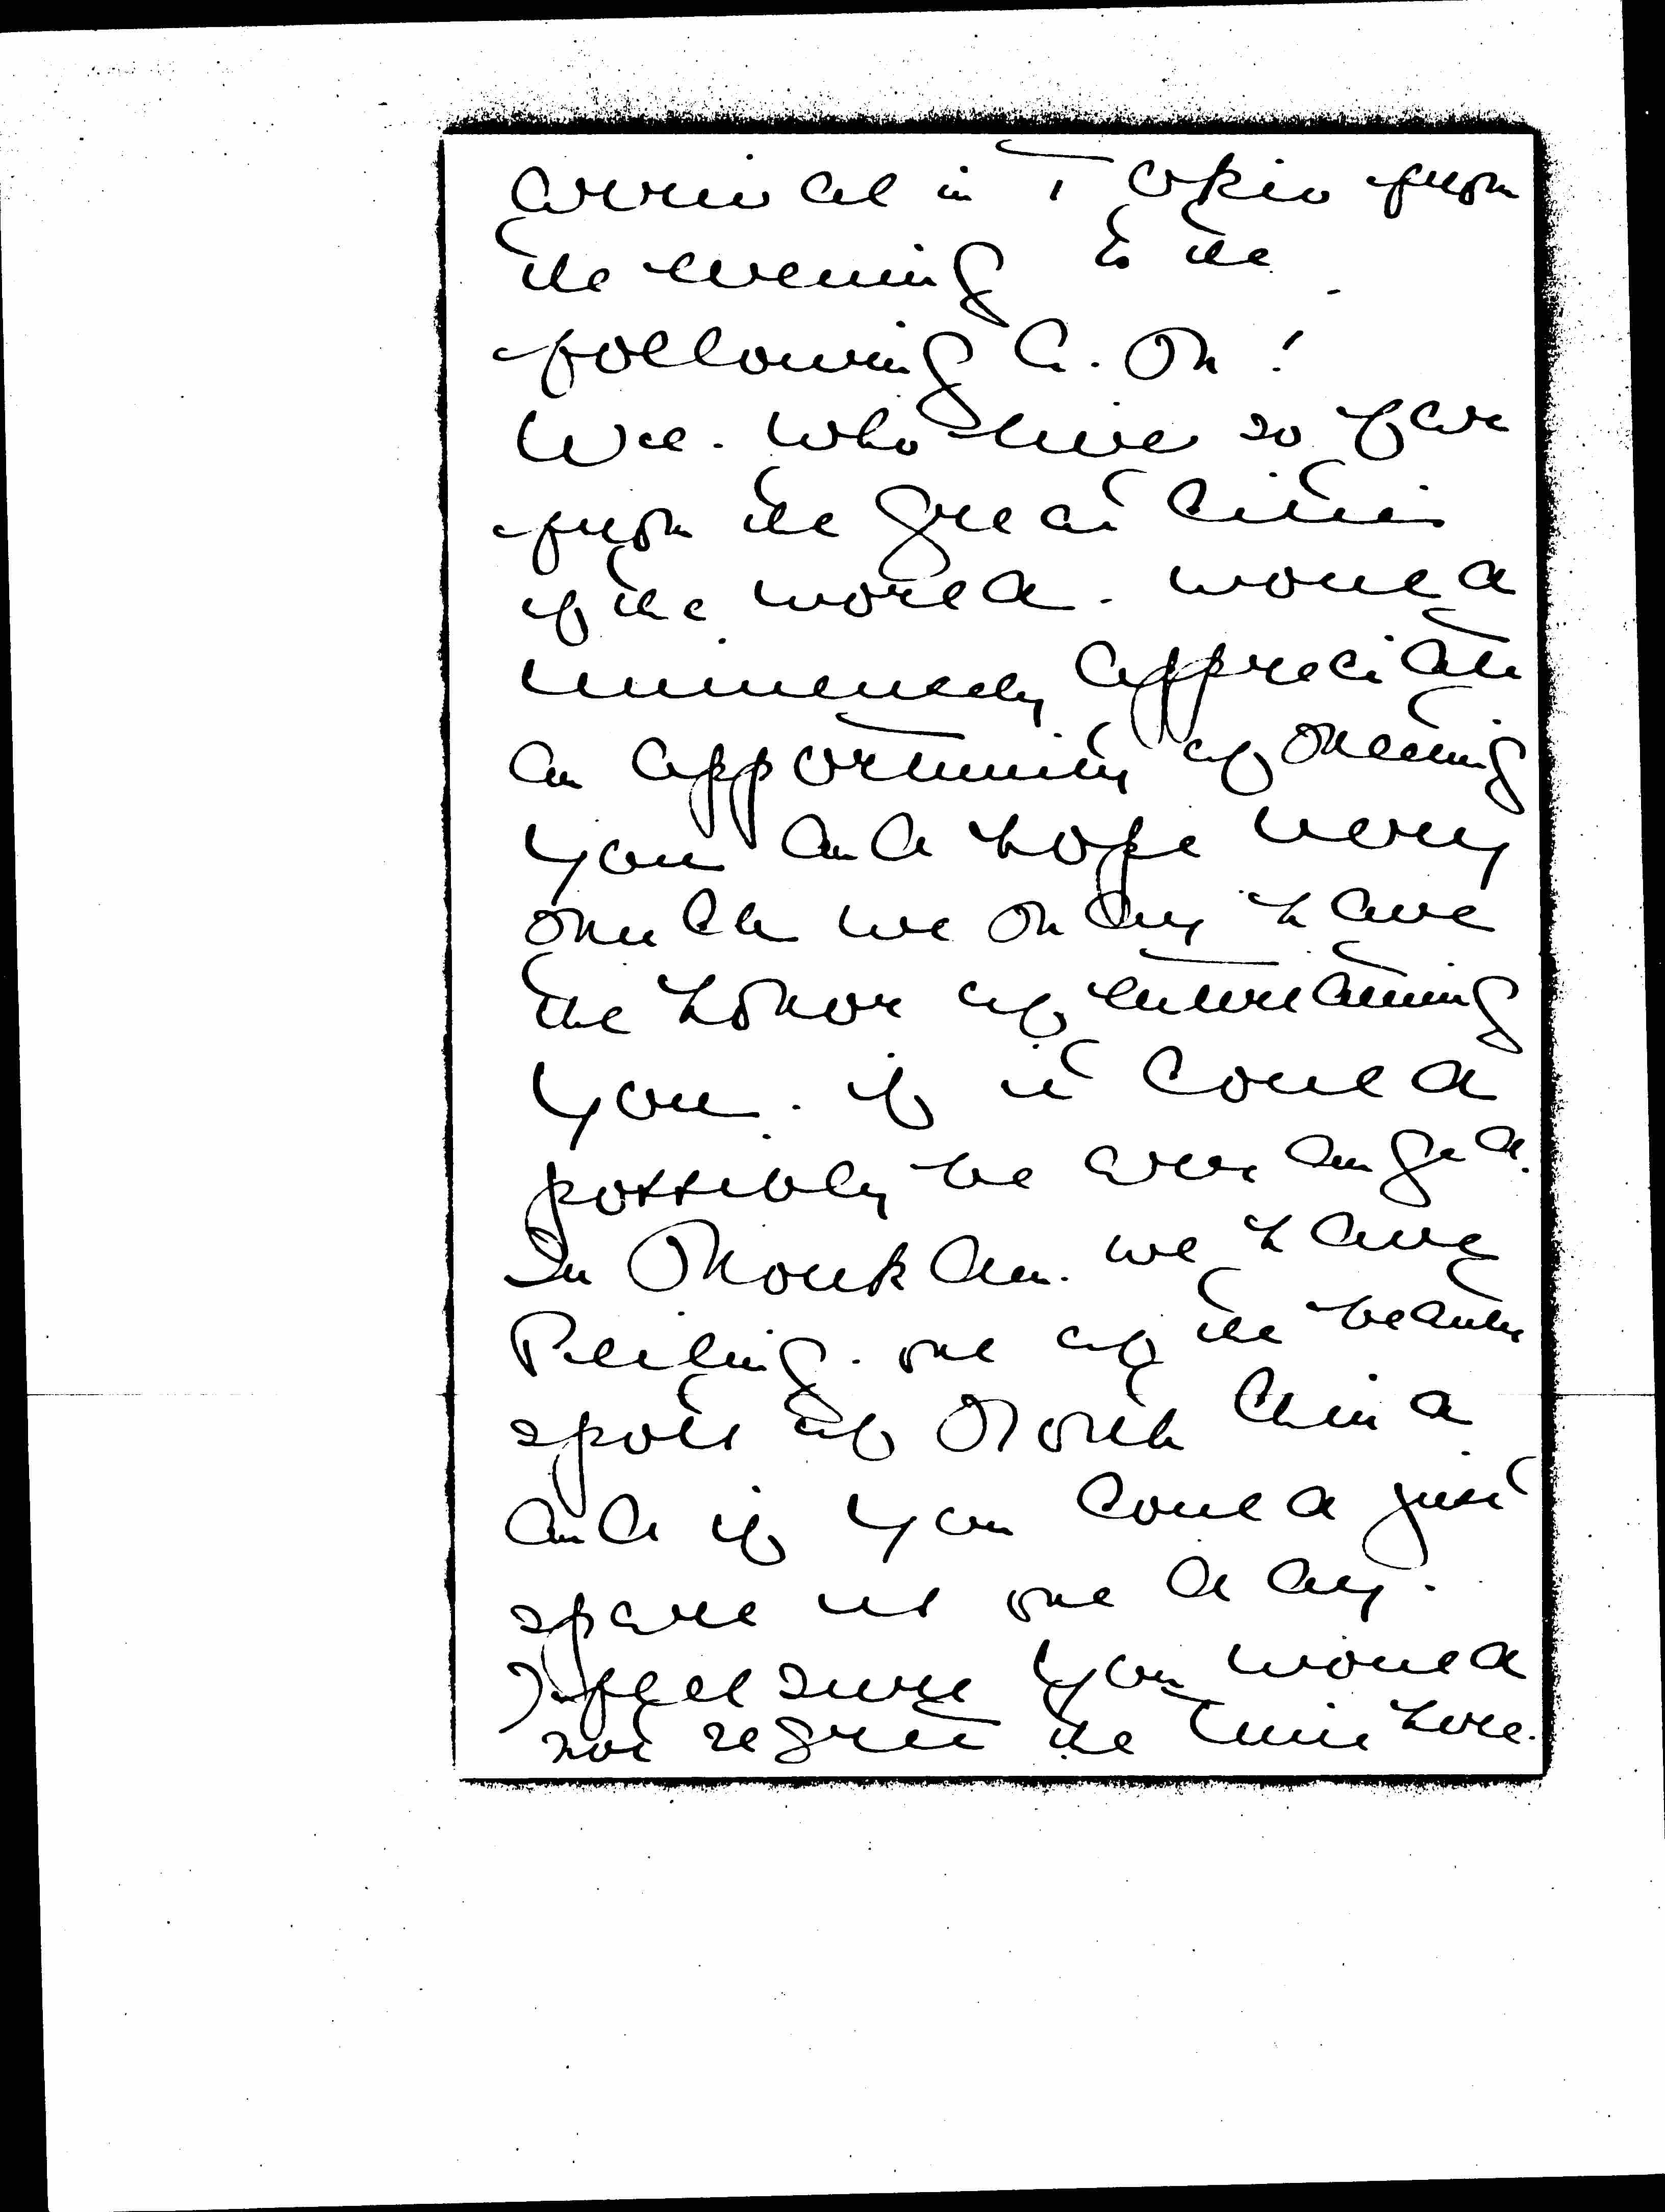 arrival in Tokio from
the evening to the
following a.m!
We. who live so far
from the great Cities
of the world. would
immensely appreciate
an opportunity of meeting
you and hope very
much we may have
the honor of entertaining
you. if it could
possibly be arranged.
In Moukden. we have
Peiling. one of the beauty
spots of North China
and if you could just
spare us one day.
I feel sure you would
not regret the time here.